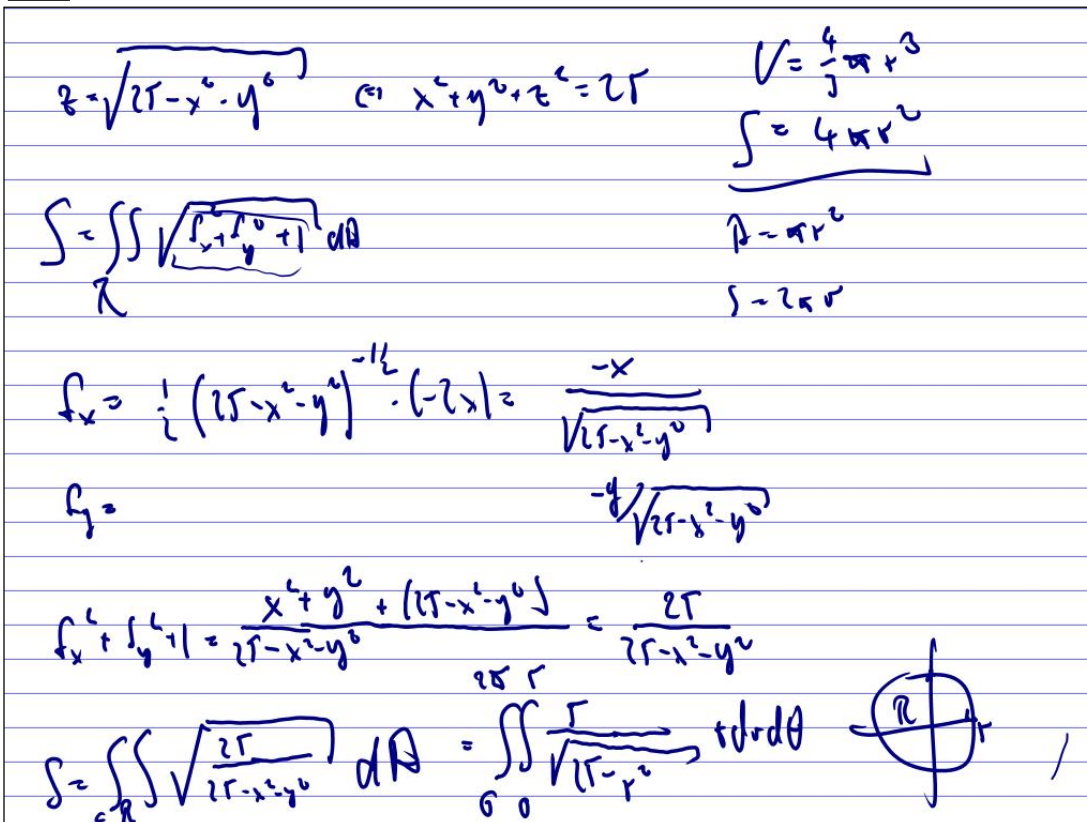 z = √(25 - x² - y²) ⇔ x² + y² + z² = 25
V = 4/3 π r³
S = 4πr²
S = ∬_R √(f_x² + f_y² + 1) dA
A = πr²
S = 2πr
f_x = 1/2 (25 - x² - y²)^(-1/2) · (-2x) = -x/√(25 - x² - y²)
f_y = -y/√(25 - x² - y²)
f_x² + f_y² + 1 = (x² + y² + (25 - x² - y²))/(25 - x² - y²) = 25/(25 - x² - y²)
S = ∬_R √(25/(25 - x² - y²)) dA = ∫_0^2π ∫_0^5 5/√(25 - r²) r dr dθ
R 5